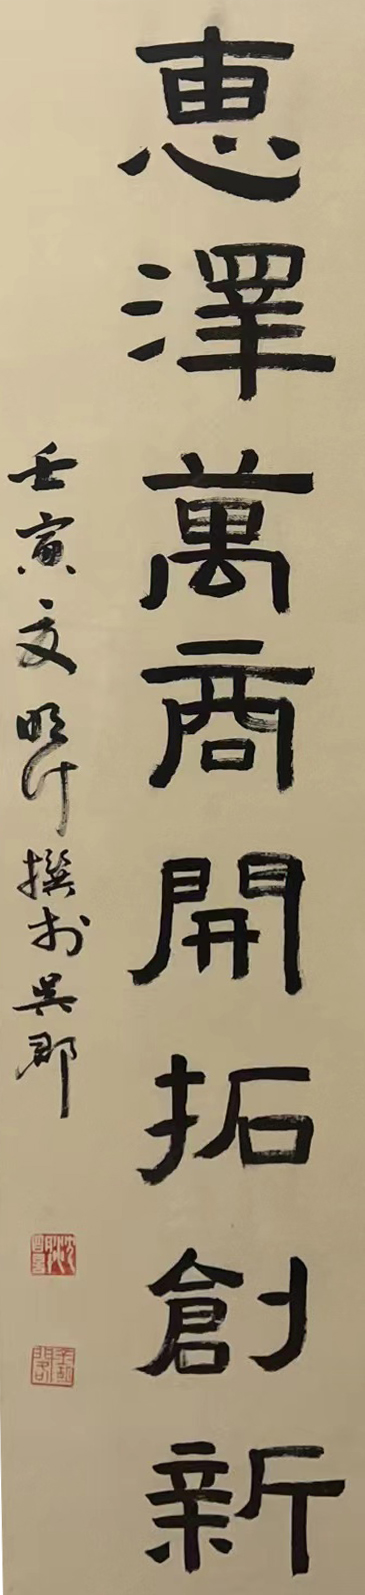 惠澤萬商開拓創新
壬寅夏明叶撰於吳郡